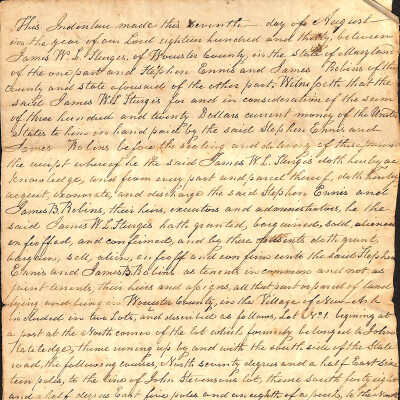 This Indenture made this seventh day of August
in the year of our Lord eighteen hundred and thirty, between
James W. L. Sturgis, of Worcester County, in the state of Maryland
of the one part and Stephen Ennis and James Robins of the
County and state aforesaid of the other part. Witnesseth that the
said James W L Sturgis for and in consideration of the sum
of three hundred and twenty Dollars current money of the United
States to him in hand paid by the said Stephen Ennis and
James Robins before the sealing and delivery of these
the receipt whereof he the said James W. L. Sturgis doth hereby ac
knowledge, and from every part and parcel thereof, doth hereby
acquit, exonerate, and discharge the said Stephen Ennis and
James B. Robins, their heirs, executors and administrators, he the
said James W L Sturgis hath granted, bargained, sold, aliened
enfeoffed, and confirmed, and by these presents doth grant
bargain, sell, alien, enfeoff and confirm unto the said Stephen
Ennis and James B. Robins as tenents in common and not as
joint tenents, their heirs and assigns, all that part or parcel of land
lying and being in Worcester County, in the Village of New Ark
included in two Lots, and described as follows, Lot No 1 begining at
a post at the North corner of the lot which formerly belonged to John
Rutledge, thence runing up by and with the south side of the State
road, the following courses, North seventy degrees and a half East six
teen poles, to the line of John Stevensons lot, thence south forty eight
and a half degrees East five poles and an eighth of a perch, to the